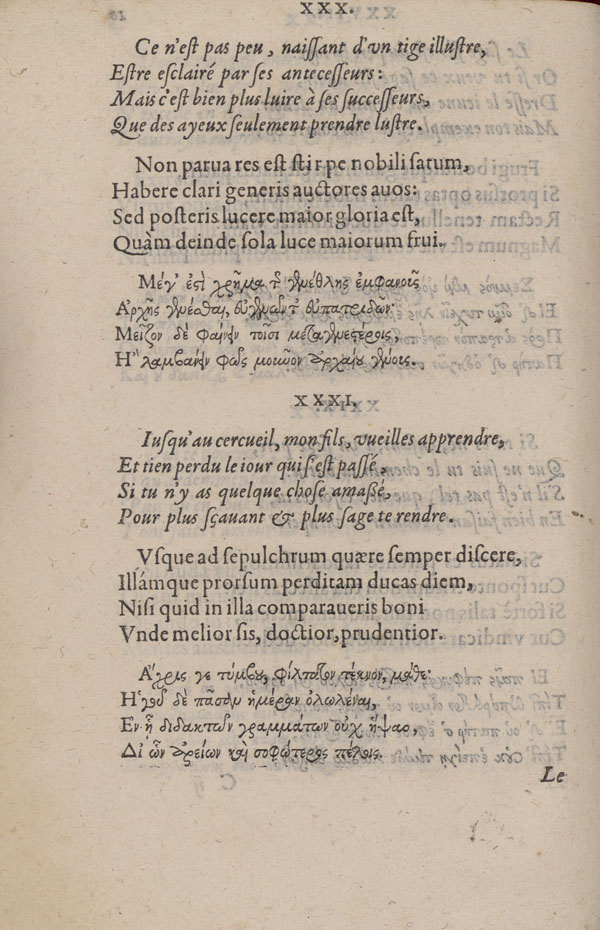 XXX.
Ce n'eſt pas peu, naiſſant d'vn tige illuſtre,
Eſtre eſclairé par ſes anteceſſeurs:
Mais c'eſt bien plus luire à ſes ſucceſſeurs,
Que des ayeux ſeulement prendre luſtre.
Non parua res eſt ſtirpe nobili ſatum,
Habere clari generis auctores auos:
Sed poſteris lucere maior gloria eſt,
Quàm deinde ſola luce maiorum frui.
Μέγ' ἐστὶ χρῆμα τ γενέθλης ἐμφανοῖς
Ἀρχῆς γενέσθαι, εὐγενῶν τ' εὐπατριδῶν·
Μεῖζον δὲ φαίνειν τοῖσι μεταγενεστέροις,
Ἢ λαμβάνειν φῶς μοιῶον ἀρχαίου γένοις.
XXXI.
Iuſqu'au cercueil, mon fils, vueilles apprendre,
Et tien perdu le iour qui s'eſt paſſé,
Si tu n'y as quelque choſe amaßé,
Pour plus ſçauant & plus ſage te rendre.
Vſque ad ſepulchrum quære ſemper diſcere,
Illámque prorſum perditam ducas diem,
Niſi quid in illa comparaueris boni
Vnde melior ſis, doctior, prudentior.
Ἄχρις γε τύμβου, φίλτατον τέκνον, μάθε·
Ἡγοῦ δὲ πᾶσαν ἡμέραν ὀλωλέναι,
Ἐν ᾗ διδακτῶν γραμμάτων οὐχ ἥψαο,
Δι' ὧν ἀρείων καὶ σοφώτερος πέλοις.
Le